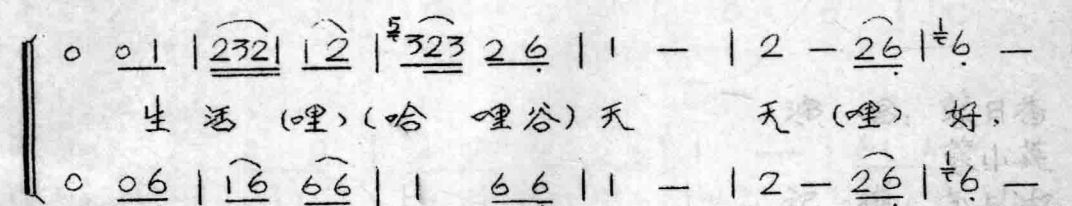 0 01 | 2321 12 | 5 323 26 | 1 — | 2 — 26 | 1 6 —
生 活 (哩)(哈 哩谷)天 天 (哩) 好,
0 06 | 16 66 | 1 66 | 1 — | 2 — 26 | 1 6 —